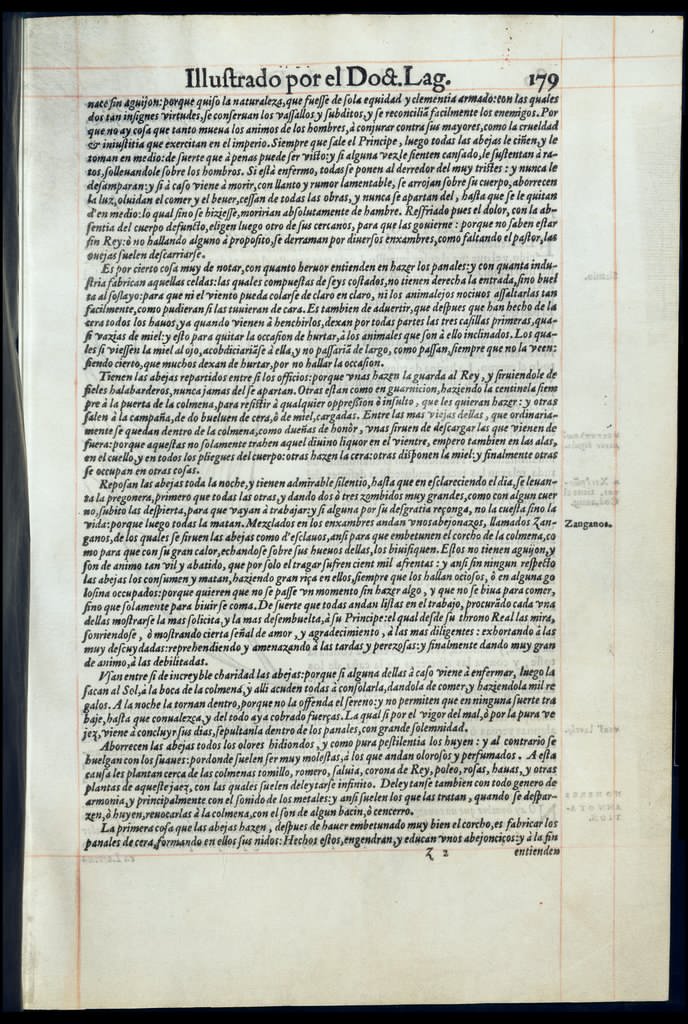 Illustrado por el Doct. Lag. 179
nace sin aguijon: porque quiso la naturaleza, que fuesse de sola equidad y clementia armado: con las quales
dos tan insignes virtudes, se conseruan los vassallos y subditos, y se reconcilià facilmente los enemigos. Por
que no ay cosa que tanto mueua los animos de los hombres, à conjurar contra sus mayores, como la crueldad
& iniustitia que exercitan en el imperio. Siempre que sale el Principe, luego todas las abejas le ciñen, y le
toman en medio: de suerte que à penas puede ser visto: y si alguna vez le sienten cansado, le sustentan à ra-
tos, solleuandole sobre los hombros. Si està enfermo, todas se ponen al derredor del muy tristes: y nunca le
desamparan: y si à caso viene à morir, con llanto y rumor lamentable, se arrojan sobre su cuerpo, aborrecen
la luz, oluidan el comer y el beuer, cessan de todas las obras, y nunca se apartan del, hasta que se le quitan
d'en medio: lo qual sino se hiziesse, moririan absolutamente de hambre. Resfriado pues el dolor, con la ab-
sentia del cuerpo defuncto, eligen luego otro de sus cercanos, para que las gouierne: porque no saben estar
sin Rey: ò no hallando alguno à proposito, se derraman por diuersos enxambres, como faltando el pastor, las
ouejas suelen descarriarse.
Es por cierto cosa muy de notar, con quanto heruor entienden en hazer los panales: y con quanta indu-
stria fabrican aquellas celdas: las quales compuestas de seys costados, no tienen derecha la entrada, sino buel
ta al soslayo: para que ni el viento pueda colarse de claro en claro, ni los animalejos nociuos assaltarlas tan
facilmente, como pudieran si las tuuieran de cara. Es tambien de aduertir, que despues que han hecho de la
cera todos los hauos, ya quando vienen à henchirlos, dexan por todas partes las tres casillas primeras, qua-
si vazias de miel: y esto para quitar la occasion de hurtar, à los animales que son à ello inclinados. Los qua-
les si viessen la miel al ojo, acobdiciariàse à ella, y no passarià de largo, como passan, siempre que no la veen:
siendo cierto, que muchos dexan de hurtar, por no hallar la occasion.
Tienen las abejas repartidos entre si los officios: porque vnas hazen la guarda al Rey, y siruiendole de
fieles halabarderos, nunca jamas del se apartan. Otras estàn como en guarnicion, haziendo la centinela siem
pre à la puerta de la colmena, para resistir à qualquier oppression ò insulto, que les quieran hazer: y otras
salen à la campaña, de dò bueluen de cera, ò de miel, cargadas. Entre las mas viejas dellas, que ordinaria-
mente se quedan dentro de la colmena, como dueñas de honor, vnas siruen de descargar las que vienen de
fuera: porque aquestas no solamente trahen aquel diuino liquor en el vientre, empero tambien en las alas,
en el cuello, y en todos los pliegues del cuerpo: otras hazen la cera: otras disponen la miel: y finalmente otras
se occupan en otras cosas.
Reposan las abejas toda la noche, y tienen admirable silentio, hasta que en esclareciendo el dia, se leuan-
ta la pregonera, primero que todas las otras, y dando dos ò tres zombidos muy grandes, como con algun cuer
no, subito las despierta, para que vayan à trabajar: y si alguna por su desgratia reçonga, no la cuesta sino la
vida: porque luego todas la matan. Mezclados en los enxambres andan vnos abejonazos, llamados Zan-
ganos, de los quales se siruen las abejas como d'esclauos, ansi para que embetunen el corcho de la colmena, co
mo para que con su gran calor, echandose sobre sus hueuos dellas, los biuifiquen. Estos no tienen aguijon, y
son de animo tan vil y abatido, que por solo el tragar sufren cient mil afrentas: y ansi sin ningun respecto
las abejas los consumen y matan, haziendo gran riça en ellos, siempre que los hallan ociosos, ò en alguna go
losina occupados: porque quieren que no se passe vn momento sin hazer algo, y que no se biua para comer,
sino que solamente para biuir se coma. De suerte que todas andan listas en el trabajo, procuràdo cada vna
dellas mostrarse la mas solicita, y la mas desembuelta, à su Principe: el qual desde su throno Real las mira,
sonriendose, ò mostrando cierta señal de amor, y agradecimiento, à las mas diligentes: exhortando à las
muy descuydadas: reprehendiendo y amenazando à las tardas y perezosas: y finalmente dando muy gran
de animo, à las debilitadas.
Vsan entre si de increyble charidad las abejas: porque si alguna dellas à caso viene à enfermar, luego la
sacan al Sol, à la boca de la colmena, y alli acuden todas à consolarla, dandola de comer, y haziendola mil re
galos. A la noche la tornan dentro, porque no la offenda el sereno: y no permiten que en ninguna suerte tra
baje, hasta que conualezca, y del todo aya cobrado fuerças. La qual si por el vigor del mal, ò por la pura ve
jez, viene à concluyr sus dias, sepultanla dentro de los panales, con grande solemnidad.
Aborrecen las abejas todos los olores hidiondos, y como pura pestilentia los huyen: y al contrario se
huelgan con los suaues: por donde suelen ser muy molestas, à los que andan olorosos y perfumados. A esta
causa les plantan cerca de las colmenas tomillo, romero, saluia, corona de Rey, poleo, rosas, hauas, y otras
plantas de aqueste jaez, con las quales suelen deleytarse infinito. Deleytanse tambien con todo genero de
armonia, y principalmente con el sonido de los metales: y ansi suelen los que las tratan, quando se despar-
zen, ò huyen, reuocarlas à la colmena, con el son de algun bacin, ò cencerro.
La primera cosa que las abejas hazen, despues de hauer embetunado muy bien el corcho, es fabricar los
panales de cera, formando en ellos sus nidos: Hechos estos, engendran, y educan vnos abejoncicos: y à la fin
Z 2 entienden
Zanganos.